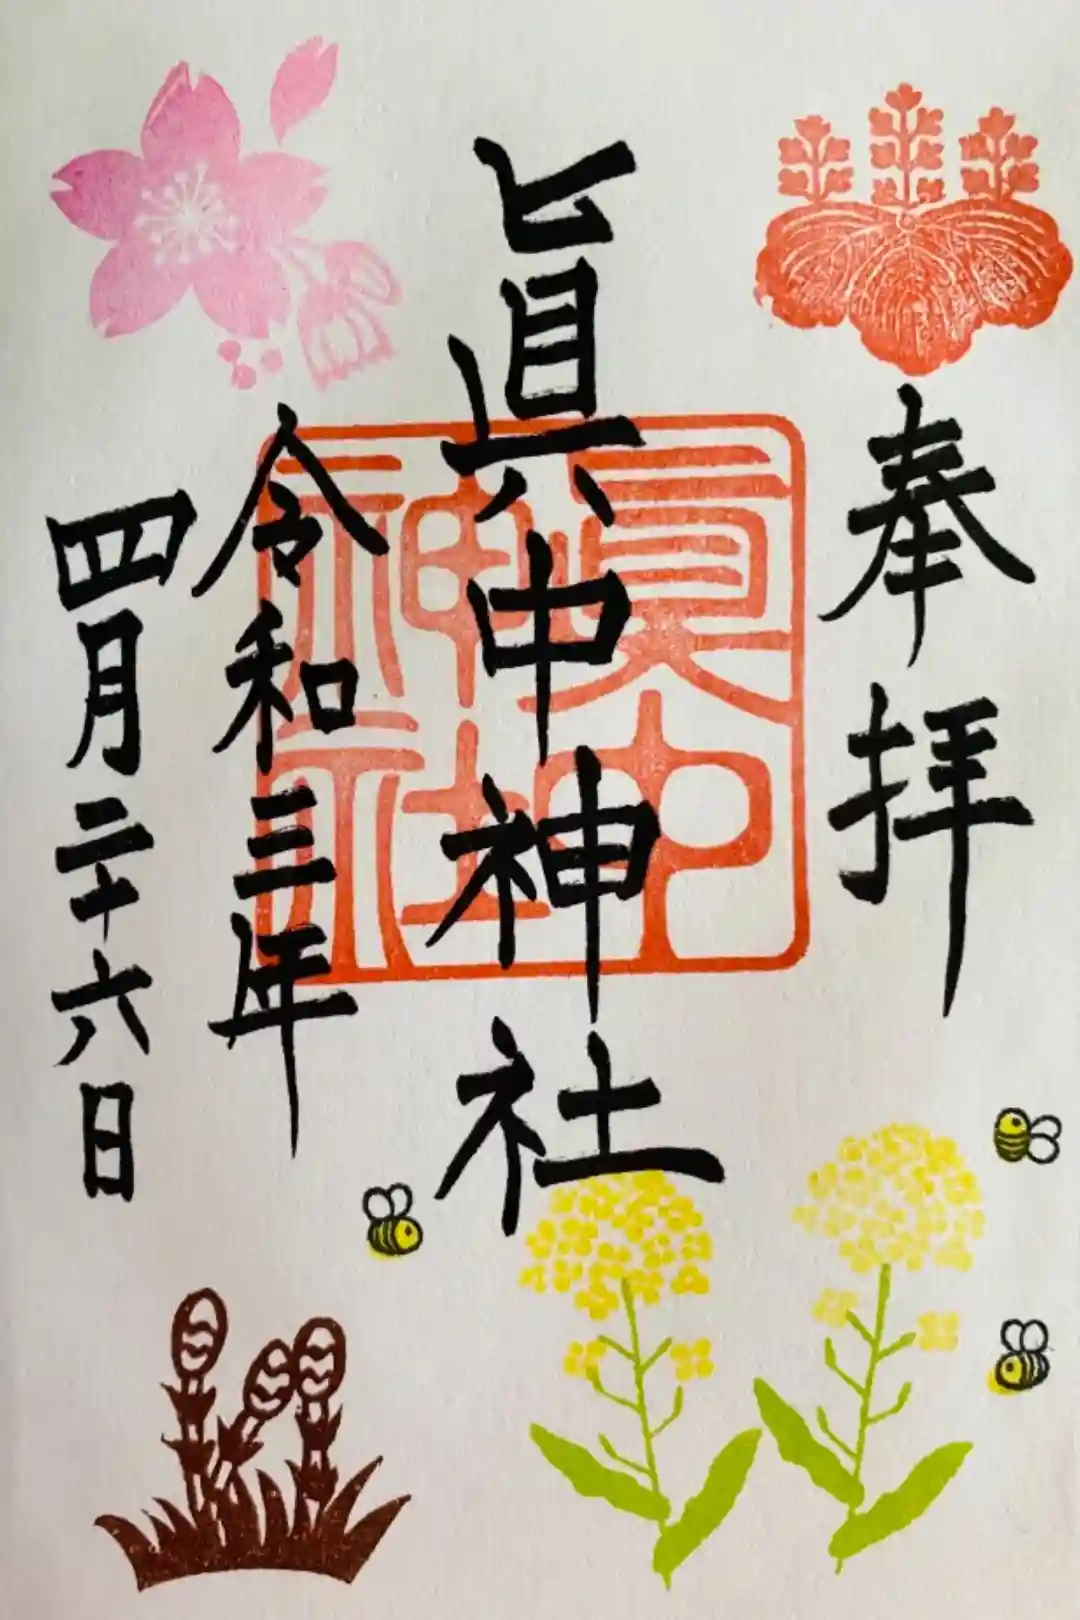 奉拝
眞中神社
眞中
神社
令和三年
四月二十六日